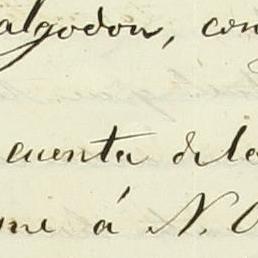 algodon, con
cuenta de la
me á N. O